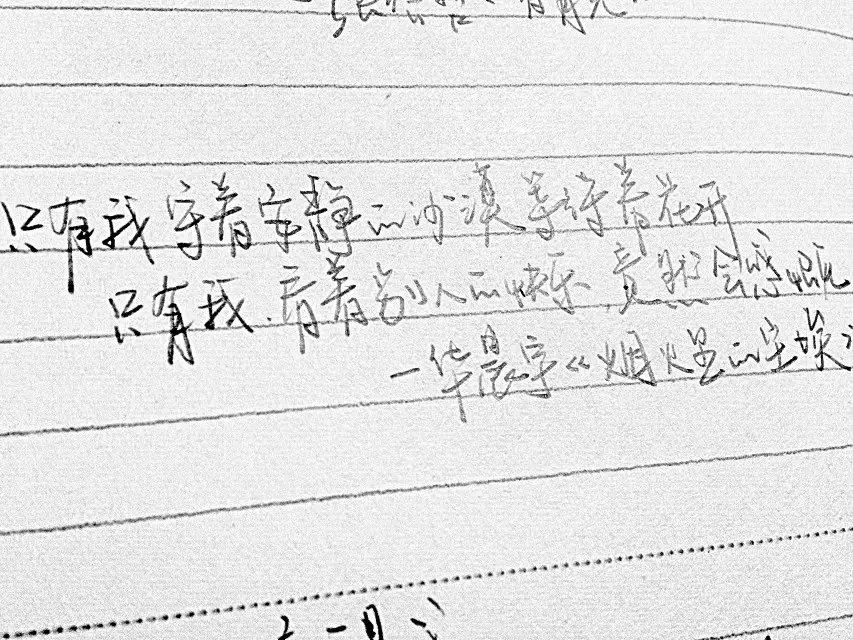 只有我守着安静的沙漠等待着花开
只有我.看着别人的快乐,竟然会感慨
—华晨宇《烟火里的尘埃》